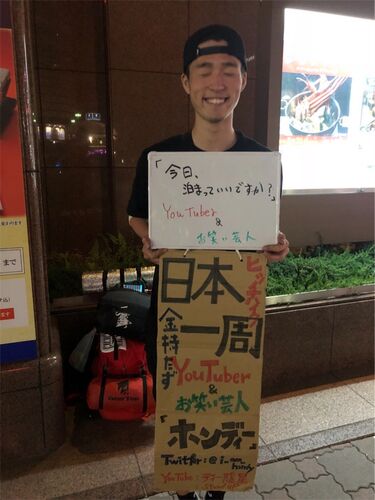 「今日、
泊まっていいですか?」
YouTuber
&
お笑い芸人
ヒッチハイク
日本
一周
金持たず
YouTuber
&
お笑い芸人
「ホンディ」
YouTube:ディー隊長
まで